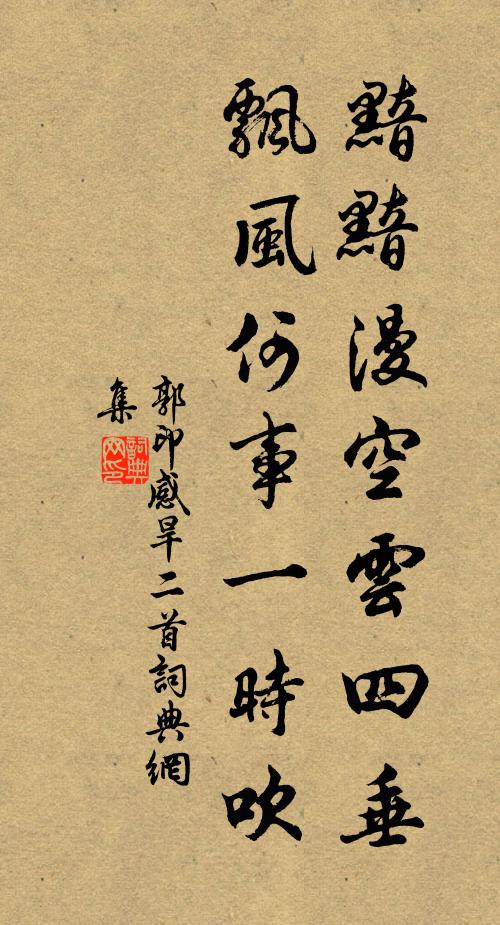 黯黯漫空雲四垂
飄風何事一時吹
郭印感旱二首詞典網
集
詞典
网印